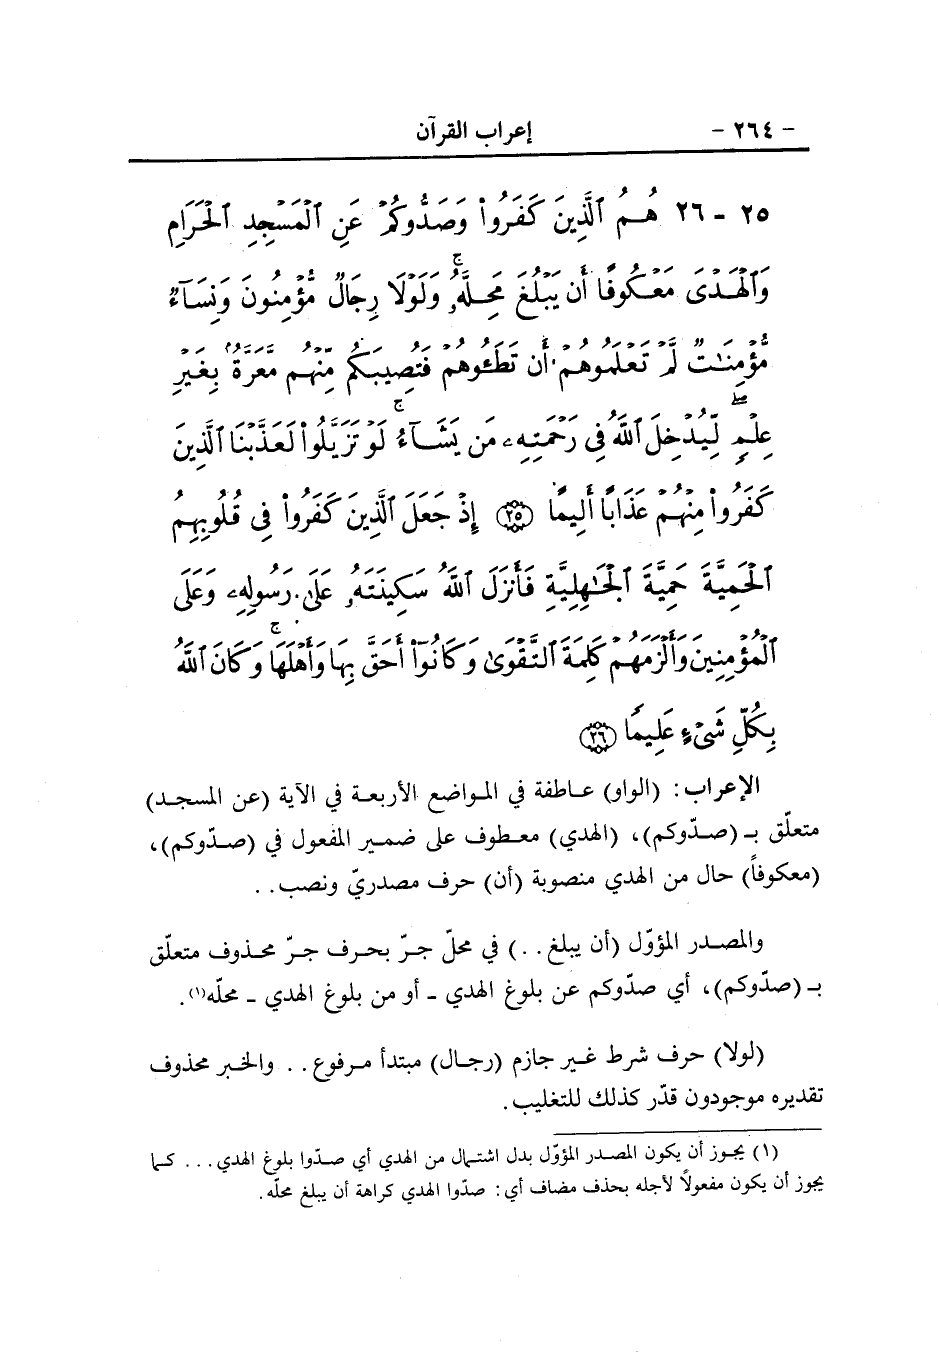 - ٢٦٤ - إعراب القرآن
٢٥ - ٢٦ هُمُ ٱلَّذِينَ كَفَرُوا۟ وَصَدُّوكُمْ عَنِ ٱلْمَسْجِدِ ٱلْحَرَامِ
وَٱلْهَدْىَ مَعْكُوفًا أَن يَبْلُغَ مَحِلَّهُۥ ۚ وَلَوْلَا رِجَالٌ مُّؤْمِنُونَ وَنِسَآءٌ
مُّؤْمِنَٰتٌ لَّمْ تَعْلَمُوهُمْ أَن تَطَـُٔوهُمْ فَتُصِيبَكُم مِّنْهُم مَّعَرَّةٌۢ بِغَيْرِ
عِلْمٍ ۖ لِّيُدْخِلَ ٱللَّهُ فِى رَحْمَتِهِۦ مَن يَشَآءُ ۚ لَوْ تَزَيَّلُوا۟ لَعَذَّبْنَا ٱلَّذِينَ
كَفَرُوا۟ مِنْهُمْ عَذَابًا أَلِيمًا ﴿٢٥﴾ إِذْ جَعَلَ ٱلَّذِينَ كَفَرُوا۟ فِى قُلُوبِهِمُ
ٱلْحَمِيَّةَ حَمِيَّةَ ٱلْجَٰهِلِيَّةِ فَأَنزَلَ ٱللَّهُ سَكِينَتَهُۥ عَلَىٰ رَسُولِهِۦ وَعَلَى
ٱلْمُؤْمِنِينَ وَأَلْزَمَهُمْ كَلِمَةَ ٱلتَّقْوَىٰ وَكَانُوٓا۟ أَحَقَّ بِهَا وَأَهْلَهَا ۚ وَكَانَ ٱللَّهُ
بِكُلِّ شَىْءٍ عَلِيمًا ﴿٢٦﴾
الإعراب: (الواو) عاطفة في المواضع الأربعة في الآية (عن المسجد)
متعلّق بـ (صدّوكم)، (الهدي) معطوف على ضمير المفعول في (صدّوكم)،
(معكوفاً) حال من الهدي منصوبة (أن) حرف مصدريّ ونصب..
والمصدر المؤوّل (أن يبلغ..) في محلّ جرّ بحرف جرّ محذوف متعلّق
بـ (صدّوكم)، أي صدّوكم عن بلوغ الهدي - أو من بلوغ الهدي - محلّه(١).
(لولا) حرف شرط غير جازم (رجال) مبتدأ مرفوع.. والخبر محذوف
تقديره موجودون قدّر كذلك للتغليب.
(١) يجوز أن يكون المصدر المؤوّل بدل اشتمال من الهدي أي صدّوا بلوغ الهدي... كما
يجوز أن يكون مفعولاً لأجله بحذف مضاف أي: صدّوا الهدي كراهة أن يبلغ محلّه.